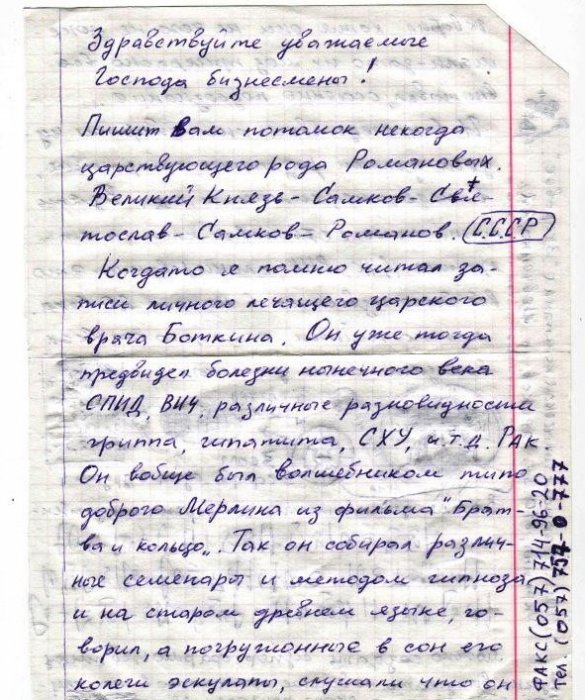 Здравствуйте уважаемые
Господа бизнесмены!
Пишит Вам потомок некогда
царствующего рода Романовых.
Великий Князь - Самков - Свя-
тослав - Самков - Романов. С.С.С.Р
Когдато я помню читал за-
писи личного лечящего царского
врача Боткина. Он уже тогда
предвидел болезни нынечного века
СПИД, ВИЧ, различные разновидности
гриппа, гипатита, СХУ, и.т.д. Рак
Он вобще был волшебником типо
доброго Мерлина из фильма "Брат-
ва и кольцо". Так он собирал различ-
ные семенары и методом гипноза
и на старом древнем языке, го-
ворил, а погружонные в сон его
колеги эскулапы, слушали что он
ФАКС (057) 714-96-20
Тел. (057) 757-0-777